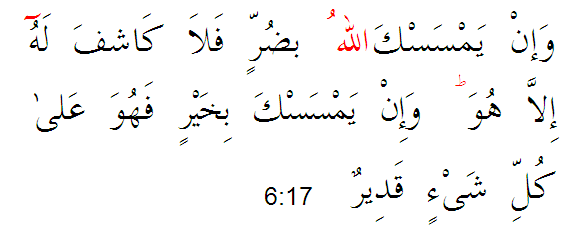 وَإنْ يَمْسَسْكَ اللهُ بضُرٍّ فَلاَ كَاشفَ لَهُٓ
إِلاَّ هُوَ ؕ وَإِنْ يَمْسَسْكَ بِخَيْرٍ فَهُوَ عَلىٰ
كُلِّ شَىْءٍ قَدِيرٌ 6:17